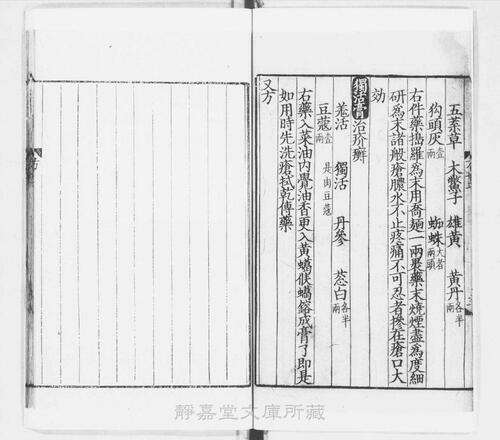 五葉草 木鱉子 雄黃 黃丹各半兩
狗頭灰壹兩 蜘蛛大者兩頭
右件藥搗羅爲末用喬麺一兩裹藥末燒煙盡爲度細
研爲末諸般瘡膿水不止疼痛不可忍者摻在瘡口大
効
獨活膏治疥癬
羗活 獨活 丹參 葱白各半兩
豆蔻壹兩 是肉豆蔻
右藥入菜油內覺油香更入黃蠟候蠟鎔成膏了即是
如用時先洗瘡拭乾傅藥
又方
靜嘉堂文庫所藏